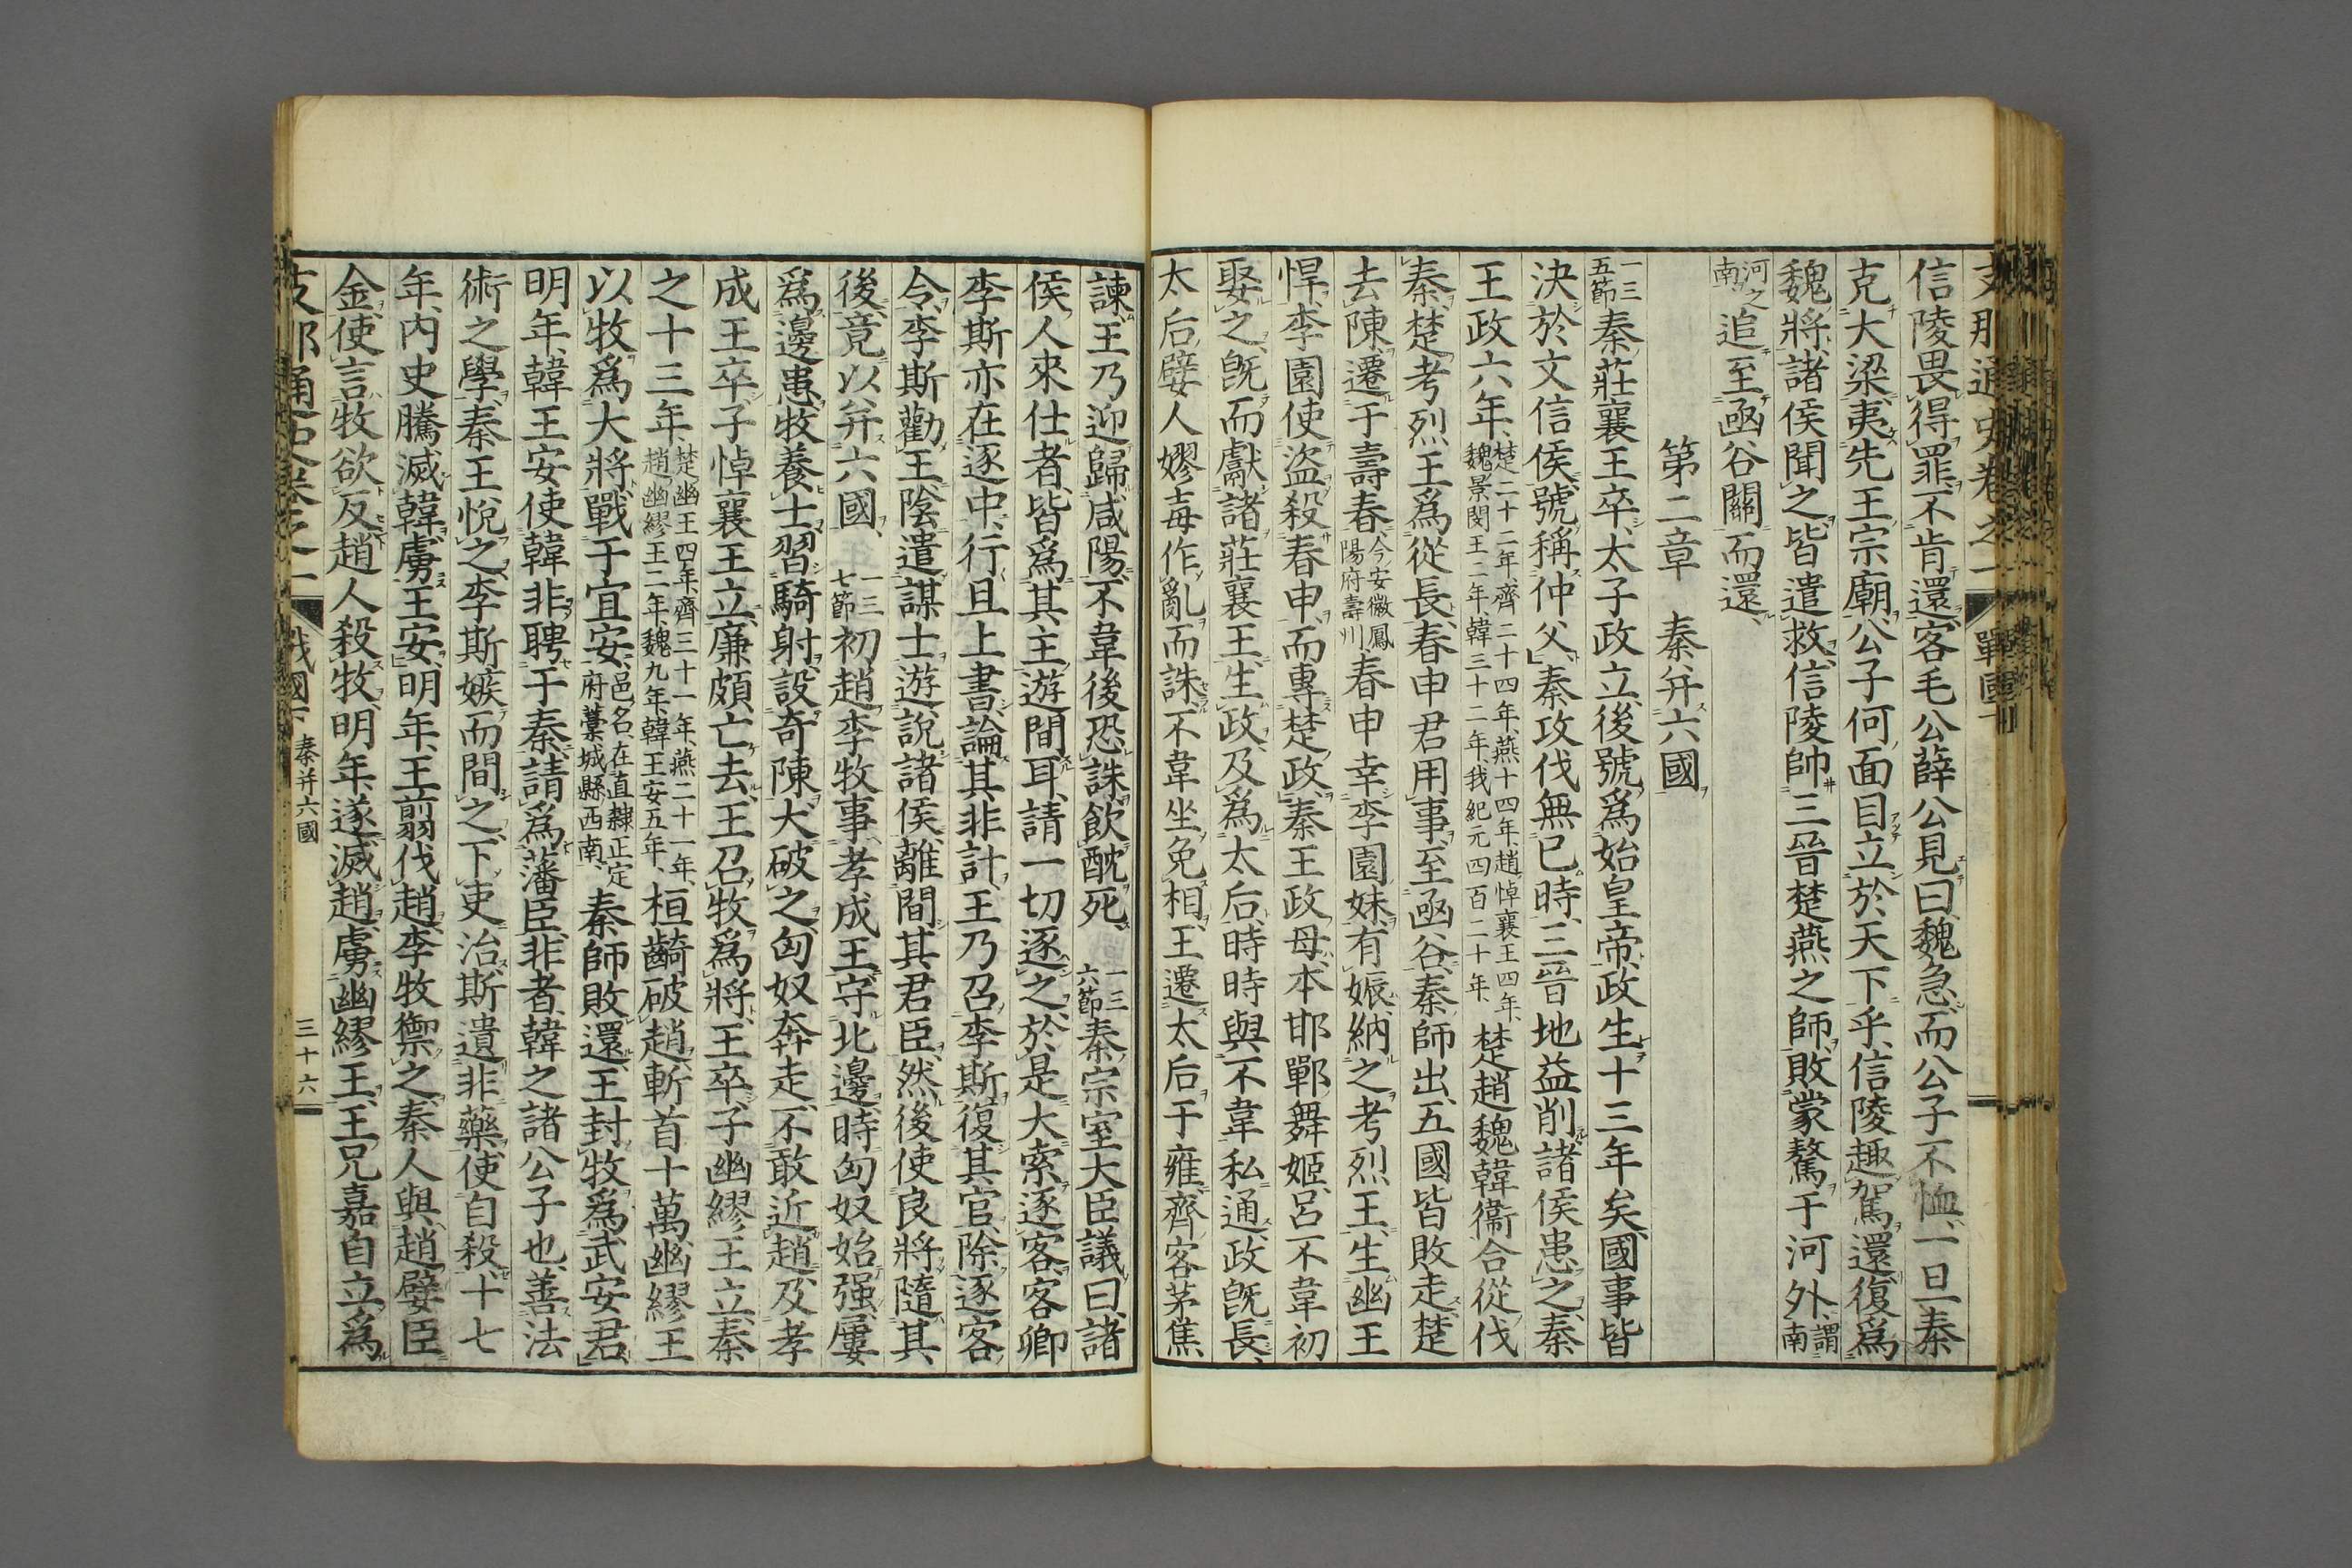 支那通史卷之一　戰國下
信陵畏得罪、不肯還、客毛公薛公見曰、魏急、而公子不恤、一旦秦
克大梁、夷先王宗廟、公子何面目立於天下乎、信陵趣駕還、復爲
魏將、諸侯聞之、皆遣救、信陵帥三晉楚燕之師、敗蒙驁于河外、謂南
河之南追至函谷關而還、
第二章　秦幷六國
一三五節秦莊襄王卒、太子政立、後號爲始皇帝、政生十三年矣、國事皆
決於文信侯、號稱仲父、秦攻伐無已時、三晉地益削、諸侯患之、秦
王政六年、楚二十二年、齊二十四年、燕十四年、趙悼襄王四年、魏景閔王二年、韓三十二年、我紀元四百二十年、楚趙魏韓衞合從伐
秦、楚考烈王爲從長、春申君用事、至函谷、秦師出、五國皆敗走、楚
去陳、遷于壽春、今安徽鳳陽府壽州春申幸李園妹、有娠、納之考烈王、生幽王
悍、李園使盜殺春申、而專楚政、秦王政母、本邯鄲舞姬、呂不韋初
娶之、既而獻諸莊襄王、生政、及爲太后、時時與不韋私通、政既長、
太后嬖人嫪毐作亂而誅、不韋坐免相、王遷太后于雍、齊客茅焦
諫、王乃迎歸咸陽、不韋後恐誅、飮酖死、　一三六節秦宗室大臣議曰、諸
侯人來仕者、皆爲其主遊間耳、請一切逐之、於是大索逐客、客卿
李斯亦在逐中、行且上書、論其非計、王乃召李斯、復其官、除逐客
令、李斯勸王、陰遣謀士、遊說諸侯、離間其君臣、然後使良將隨其
後、竟以幷六國、　一三七節初趙李牧事孝成王、守北邊、時匈奴始强、屢
爲邊患、牧養士、習騎射、設奇陳、大破之、匈奴奔走、不敢近趙、及孝
成王卒、子悼襄王立、廉頗亡去、王召牧爲將、王卒、子幽繆王立、秦
之十三年、楚幽王四年、齊三十一年、燕二十一年、趙幽繆王二年、魏九年、韓王安五年、桓齮破趙、斬首十萬、幽繆王
以牧爲大將、戰于宜安、邑名、在直隸正定府藁城縣西南、秦師敗還、王封牧爲武安君、
明年、韓王安使韓非聘于秦、請爲藩臣、非者、韓之諸公子也、善法
術之學、秦王悅之、李斯嫉而間之、下吏治、斯遺非藥、使自殺、十七
年、內史騰滅韓、虜王安、明年、王翦伐趙、李牧禦之、秦人與趙嬖臣
金、使言牧欲反、趙人殺牧、明年、遂滅趙、虜幽繆王、王兄嘉自立爲
支那通史卷之一　戰國下　秦幷六國　三十六